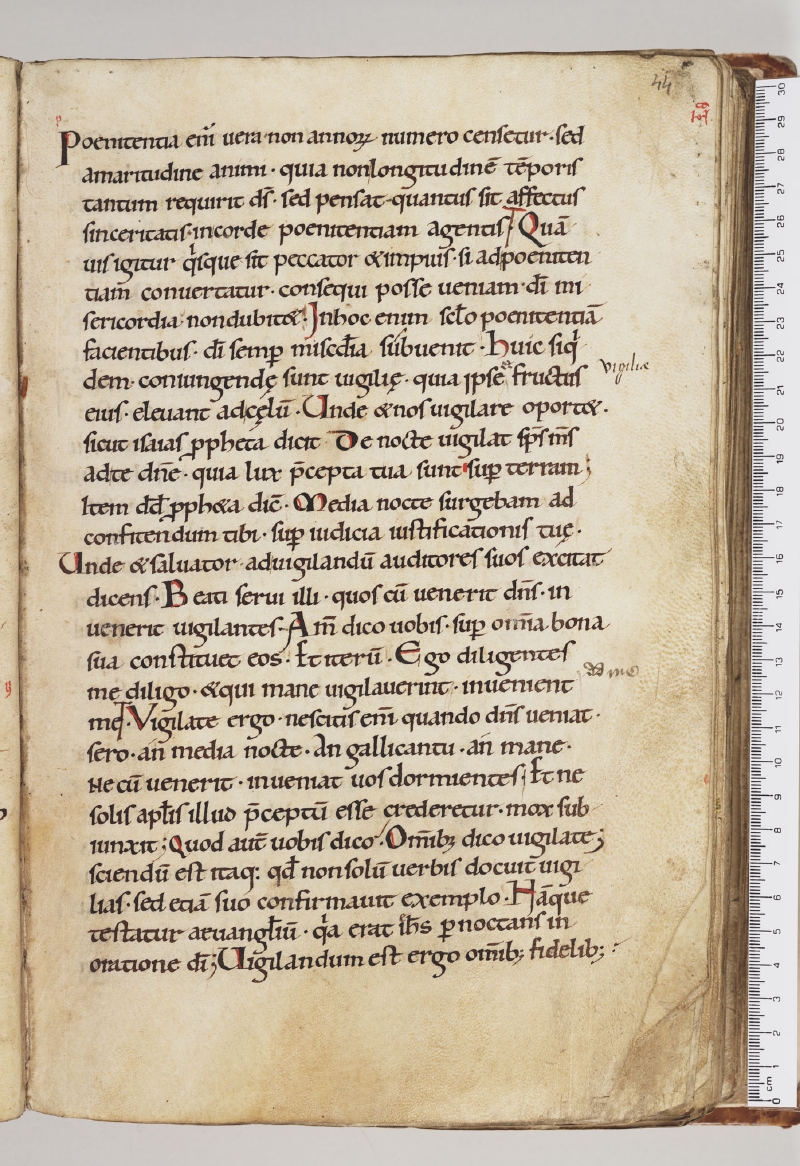 44
Poenitentia eni̅ uera non annoꝝ numero censetur · sed
amaritudine animi · quia nonlongitudine̅ te̅poris
tantum requirit ds̅ · sed pensat quantus sit affectus
sinceritatis incorde poenitentiam agentis; Qua̅
uis igitur qͥsque sit peccator &impius · si adpoeniten
tiam conuertatur · consequi posse ueniam di̅ mi
sericordia nondubit& · Inhoc enim sclo̅ poenitentia̅
facientibus · di̅ semꝑ miscdi̅a subuenit · Huic siqͥ
dem coniungendę sunt uigilię · quia ipse & fructus
uigiliæ
eius · eleuant adcęlu̅ · Unde &nos uigilare oport& ·
sicut isaias ꝓpheta dicit De nocte uigilat sps̅ ms̅
adte dne̅ · quia lux p̅cepta tua sunt suꝑ terram;
Item dd̅ ꝓph&a dic̅ · Media nocte surgebam ad
confitendum tibi · suꝑ iudicia iustificationis tuę ·
Unde &saluator aduigilandu̅ auditores suos excitat
dicens · Beati serui illi · quos cu̅ uenerit dns̅ · in
uenerit uigilantes · Am̅ dico uobis · suꝑ omi̅a bona
sua constituet eos · Et iteru̅ · Ego diligentes
me diligo · &qui mane uigilauerint · inuenient
me; Vigilate ergo · nescitis eni̅ quando dns̅ ueniat ·
sero · an media nocte · An gallicantu · an mane ·
Ne cu̅ uenerit · inueniat uos dormientes; Et ne
solis aplis̅ illud p̅ceptu̅ esse crederetur · mox sub
iunxit; Quod aut̅ uobis dico · Omi̅b; dico uigilate;
sciendu̅ est itaq: qd̅ nonsolu̅ uerbis docuit uigi
lias · sed etia̅ suo confirmauit exemplo · Ha̅que
testatur aeuangliu̅ · qͣa erat ih̅s ꝑnoctans in
oratione di̅; Uigilandum est ergo omi̅b; fidelib;